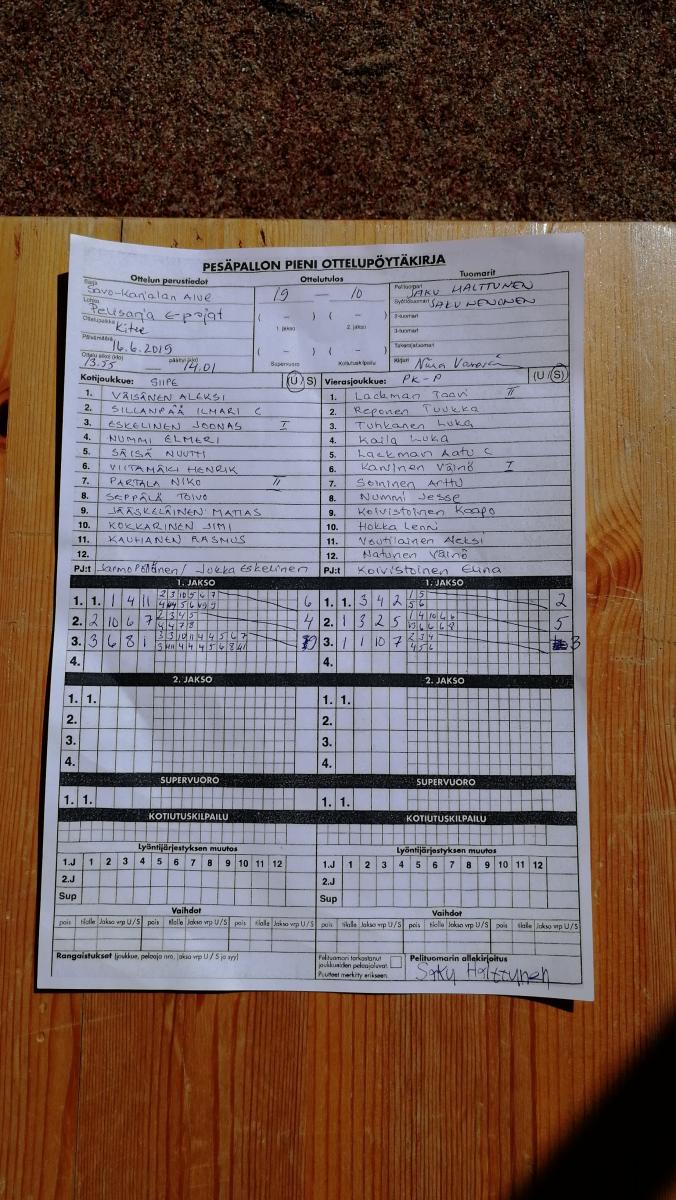 PESÄPALLON PIENI OTTELUPÖYTÄKIRJA
Ottelun perustiedot Ottelutulos Tuomarit
Sarja Savo-Karjalan Alue
Lohko Pelisarja E-pojat
Ottelupaikka Kitee
Päivämäärä 16.6.2019
Ottelu alkoi (klo) 13.55 päättyi (klo) 14.01
19 — 10
( – ) ( – )
1. jakso 2. jakso
( – ) ( – )
Supervuoro Kotiutuskilpailu
Pelituomari SAKU HALTTUNEN
Syöttötuomari SAKU NENONEN
2-tuomari
3-tuomari
Takarajatuomari
Kirjuri
Kotijoukkue: SIIPE (U/S)
1. VÄISÄNEN ALEKSI
2. SILLANPÄÄ ILMARI C
3. ESKELINEN JOONAS I
4. NUMMI ELMERI
5. SÄISÄ NUUTTI
6. VIITAMÄKI HENRIK
7. PARTALA NIKO II
8. SEPPÄLÄ TOIVO
9. JÄÄSKELÄINEN MATIAS
10. KOKKARINEN JIMI
11. KAUHANEN RASMUS
12.
PJ:t Jarmo Pöllänen / Jukka Eskelinen
Vierasjoukkue: PK-P (U/S)
1. Lackman Taavi II
2. Reponen Tuukka
3. Tuhkanen Luka
4. Kaila Luka
5. Lackman Aatu C
6. Karvinen Väinö I
7. Soininen Arttu
8. Nummi Jesse
9. Koivistoinen Kaapo
10. Hokka Lenni
11. Voutilainen Aleksi
12. Natunen Väinö
PJ:t Koivistoinen Elina
1. JAKSO 1. JAKSO
1. 1. 1 4 11 6
2. 2 10 6 7 4
3. 3 6 8 1 9
4.
1. 1. 3 4 2 2
2. 1 3 2 5 5
3. 1 1 10 7 3
4.
2. JAKSO 2. JAKSO
1. 1. 1. 1.
2. 2.
3. 3.
4. 4.
SUPERVUORO SUPERVUORO
1. 1. 1. 1.
KOTIUTUSKILPAILU KOTIUTUSKILPAILU
Lyöntijärjestyksen muutos Lyöntijärjestyksen muutos
1.J 1 2 3 4 5 6 7 8 9 10 11 12 1.J 1 2 3 4 5 6 7 8 9 10 11 12
2.J 2.J
Sup Sup
Vaihdot Vaihdot
pois tilalle Jakso vrp U/S pois tilalle Jakso vrp U/S pois tilalle Jakso vrp U/S pois tilalle Jakso vrp U/S pois tilalle Jakso vrp U/S pois tilalle Jakso vrp U/S
Rangaistukset (joukkue, pelaaja nro, jakso vrp U/S ja syy)
Pelituomari tarkastanut
joukkueiden pelaajaluvat.
Puutteet merkitty erikseen.
Pelituomarin allekirjoitus
Saku Halttunen